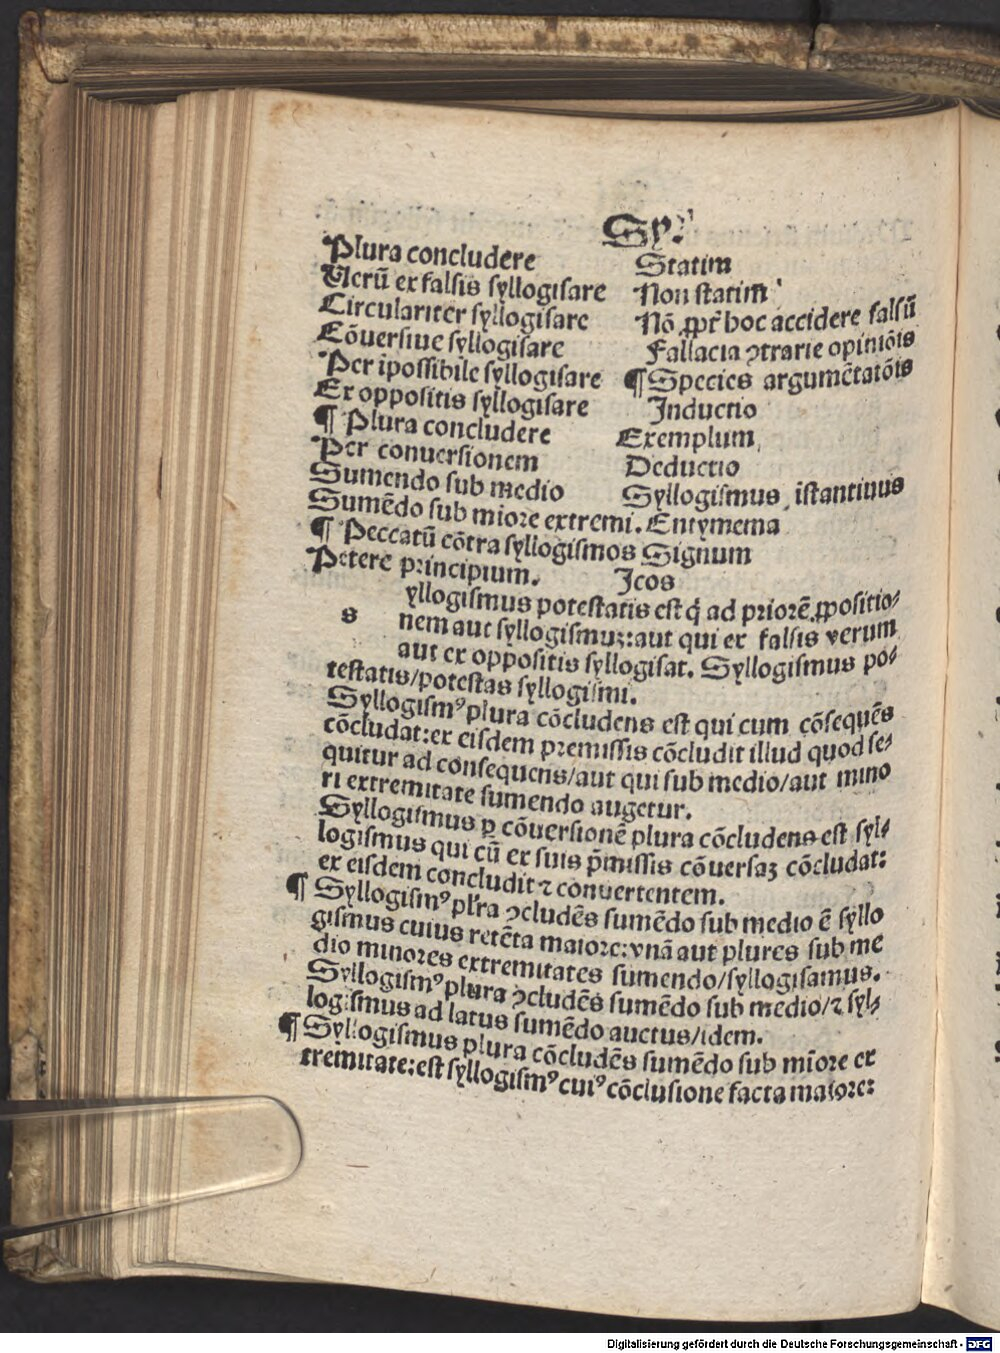 Sy.
Plura concludere
Uerū ex falsis syllogisare
Circulariter syllogisare
Cōuersiue syllogisare
Per īpossibile syllogisare
Ex oppositis syllogisare
¶ Plura concludere
Per conuersionem
Sumendo sub medio
Sumēdo sub miore extremi.
¶ Peccatū cōtra syllogismos
Petere principium.
Statim
Non statim
Nō ꝓpt̄ hoc accidere falsū
Fallacia ꝯtrarie opiniōis
¶ Species argumētatōis
Inductio
Exemplum
Deductio
Syllogismus istantiuus
Entymema
Signum
Icos
s
yllogismus potestatis est q̄ ad priorē ꝓpositio⸗
nem aut syllogismuꝫ: aut qui ex falsis verum
aut ex oppositis syllogisat. Syllogismus po⸗
testatis/potestas syllogismi.
Syllogismꝰ plura cōcludens est qui cum cōsequēs
cōcludat: ex eisdem premissis cōcludit illud quod se⸗
quitur ad consequens/aut qui sub medio/aut mino
ri extremitate sumendo augetur.
Syllogismus ꝑ cōuersionē plura cōcludens est syl⸗
logismus qui cū ex suis p̄missis cōuersaꝫ cōcludat:
ex eisdem concludit ⁊ conuertentem.
¶ Syllogismꝰ pl̄ra ꝯcludēs sumēdo sub medio ē syllo
gismus cuius retēta maiore: vnā aut plures sub me
dio minores extremitates sumendo/syllogisamus.
Syllogismꝰ plura ꝯcludēs sumēdo sub medio/⁊ syl⸗
logismus ad latus sumēdo auctus/idem.
¶ Syllogismus plura cōcludēs sumēdo sub mīore ex
tremitate: est syllogismꝰ cuiꝰ cōclusione facta maiore:
Digitalisierung gefördert durch die Deutsche Forschungsgemeinschaft - DFG